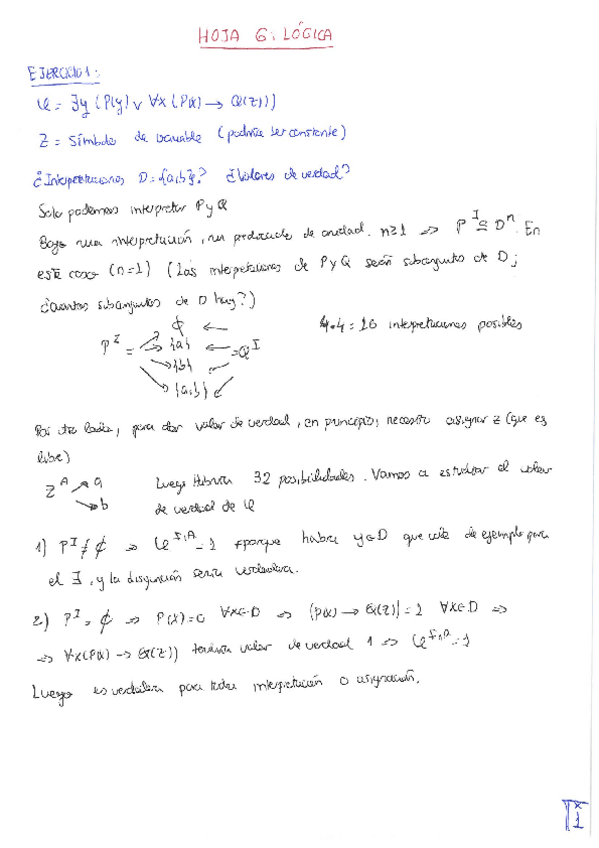 HOJA 6: LÓGICA
EJERCICIO 1:
φ = ∃y (P(y) ∨ ∀x (P(x) → Q(z)))
Z = Símbolo de variable (podría ser constante)
¿Interpretaciones D = {a,b}? ¿Valores de verdad?
Solo podemos interpretar P y Q
Bajo una interpretación, un predicado de aridad n≥1 => P^I ⊆ D^n. En
este caso (n=1) (Las interpretaciones de P y Q serán subconjuntos de D;
¿cuántos subconjuntos de D hay?)
∅
P^I = {a} = Q^I
{b}
{a,b}
4·4 = 16 interpretaciones posibles
Por otro lado, para dar valor de verdad, en principio, necesito asignar z (que es
libre)
Z^A a
b
Luego Habría 32 posibilidades. Vamos a estudiar el valor
de verdad de φ
1) P^I ≠ ∅ => φ^I,A = 1 porque habrá y∈D que vale de ejemplo para
el ∃, y la disyunción sería verdadera.
2) P^I = ∅ => P(x)=0 ∀x∈D => (P(x) → Q(z)) = 1 ∀x∈D =>
=> ∀x(P(x) → Q(z)) tendría valor de verdad 1 => φ^I,A = 1
Luego es verdadera para toda interpretación o asignación.
1